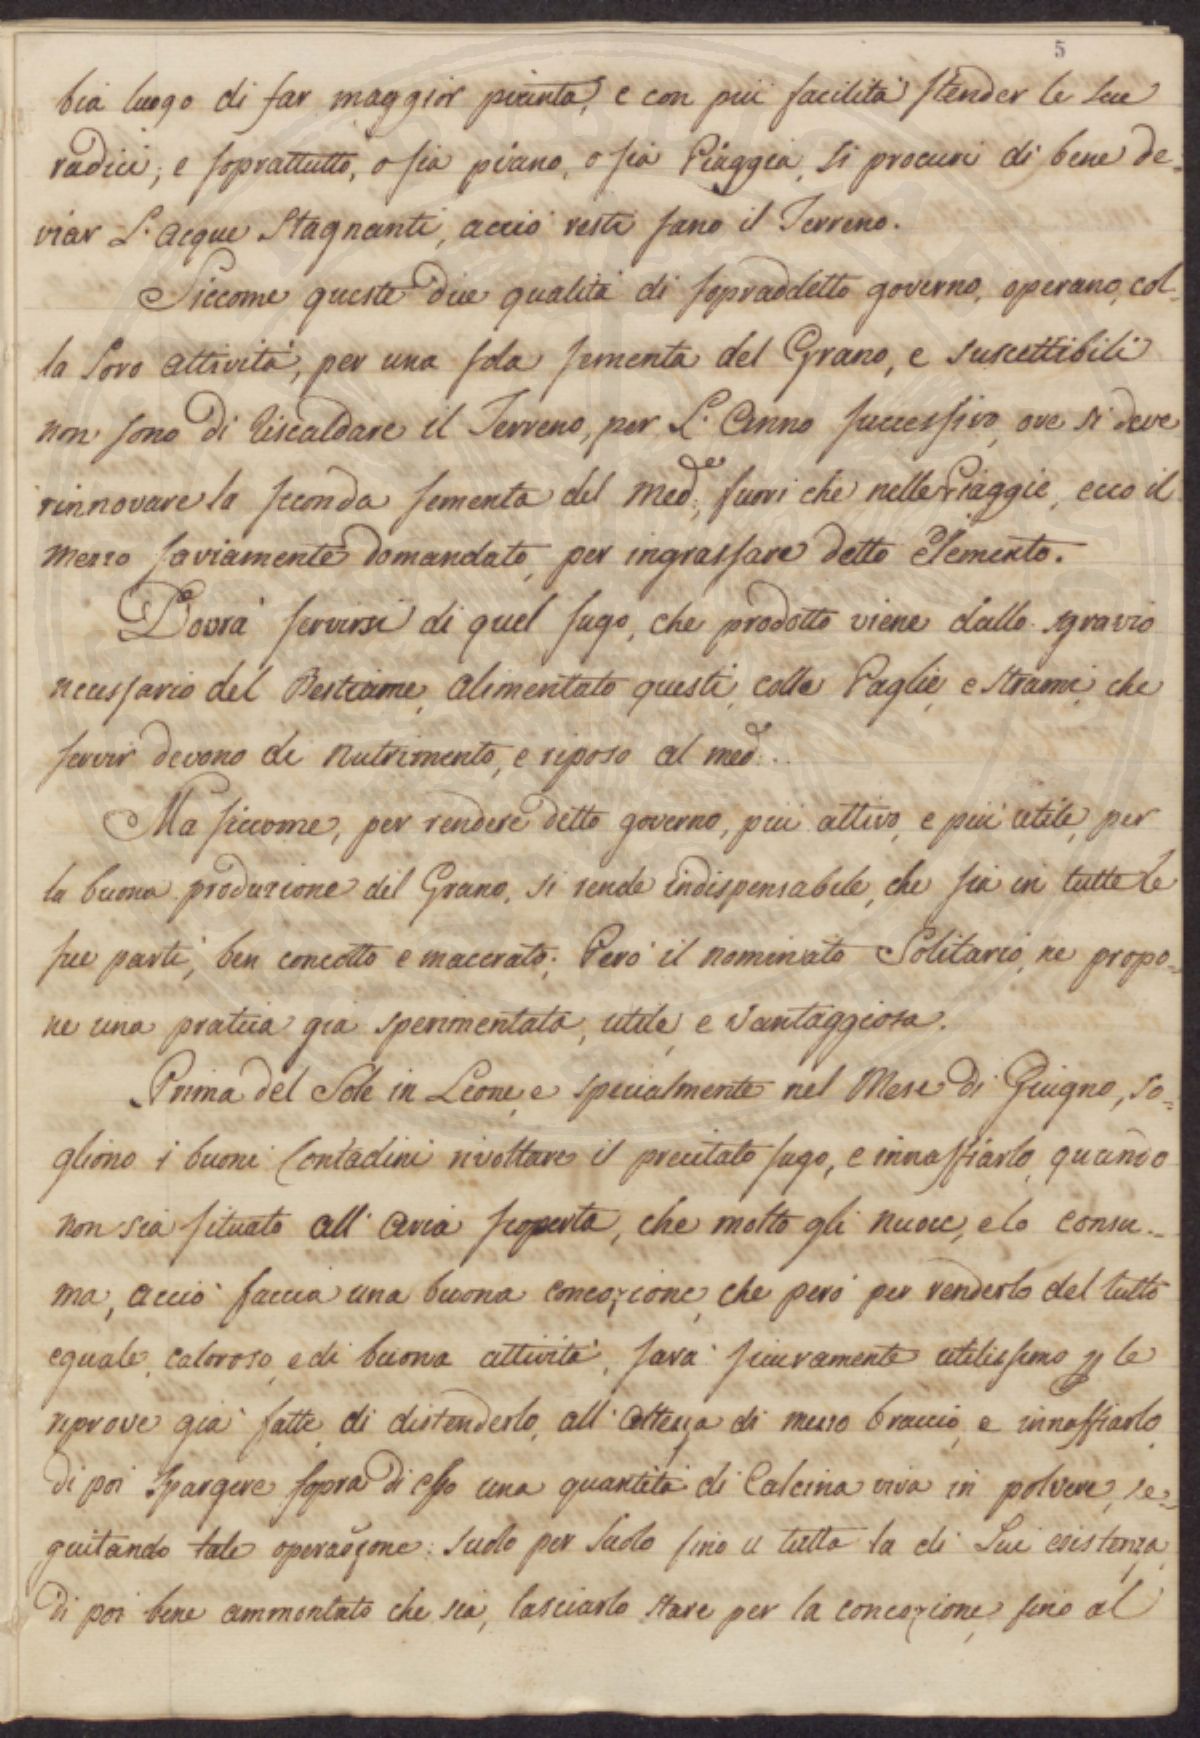 5
bia luogo di far maggior pianta, e con più facilità stender le sue
radici; e soprattutto, o sia piano, o sia Piaggia, si procuri di bene de-
viar L'acque Stagnanti, acciò resti sano il Terreno.
Siccome queste due qualità di sopraddetto governo, operano, col-
la Loro attività, per una sola sementa del Grano, e suscettibili
non sono di riscaldare il Terreno, per L'Anno successivo, ove si deve
rinnovare la seconda sementa del med:e, fuori che nelle Piaggie, ecco il
mezzo saviamente domandato, per ingrassare detto elemento.
Dovrà servirsi di quel sugo, che prodotto viene dallo sgravio
necessario del Bestiame, alimentato questi, colle Paglie, e strami, che
servir devono di nutrimento, e riposo al med:o.
Ma siccome, per rendere detto governo, più attivo, e più utile, per
la buona produzione del Grano, si rende indispensabile, che sia in tutte le
sue parti, ben concotto e macerato; Però il nominato Solitario, ne propo-
ne una pratica già sperimentata, utile, e vantaggiosa.
Prima del Sole in Leone, e specialmente nel Mese di Giugno, so-
gliono i buoni Contadini rivoltare il precitato sugo, e innaffiarlo, quando
non sia situato all'aria scoperta, che molto gli nuoce, e lo consu-
ma, acciò faccia una buona concozione, che però per renderlo del tutto
equale, caloroso, e di buona attività, sarà sicuramente utilissimo p le
riprove già fatte, di distenderlo, all'altezza di mezzo braccio, e innaffiarlo,
di poi spargere sopra di esso una quantità di Calcina viva in polvere, se-
guitando tale operazione: suolo per suolo sino a tutta la di Lui esistenza,
di poi bene ammontato che sia, lasciarlo stare per la concozione, sino al